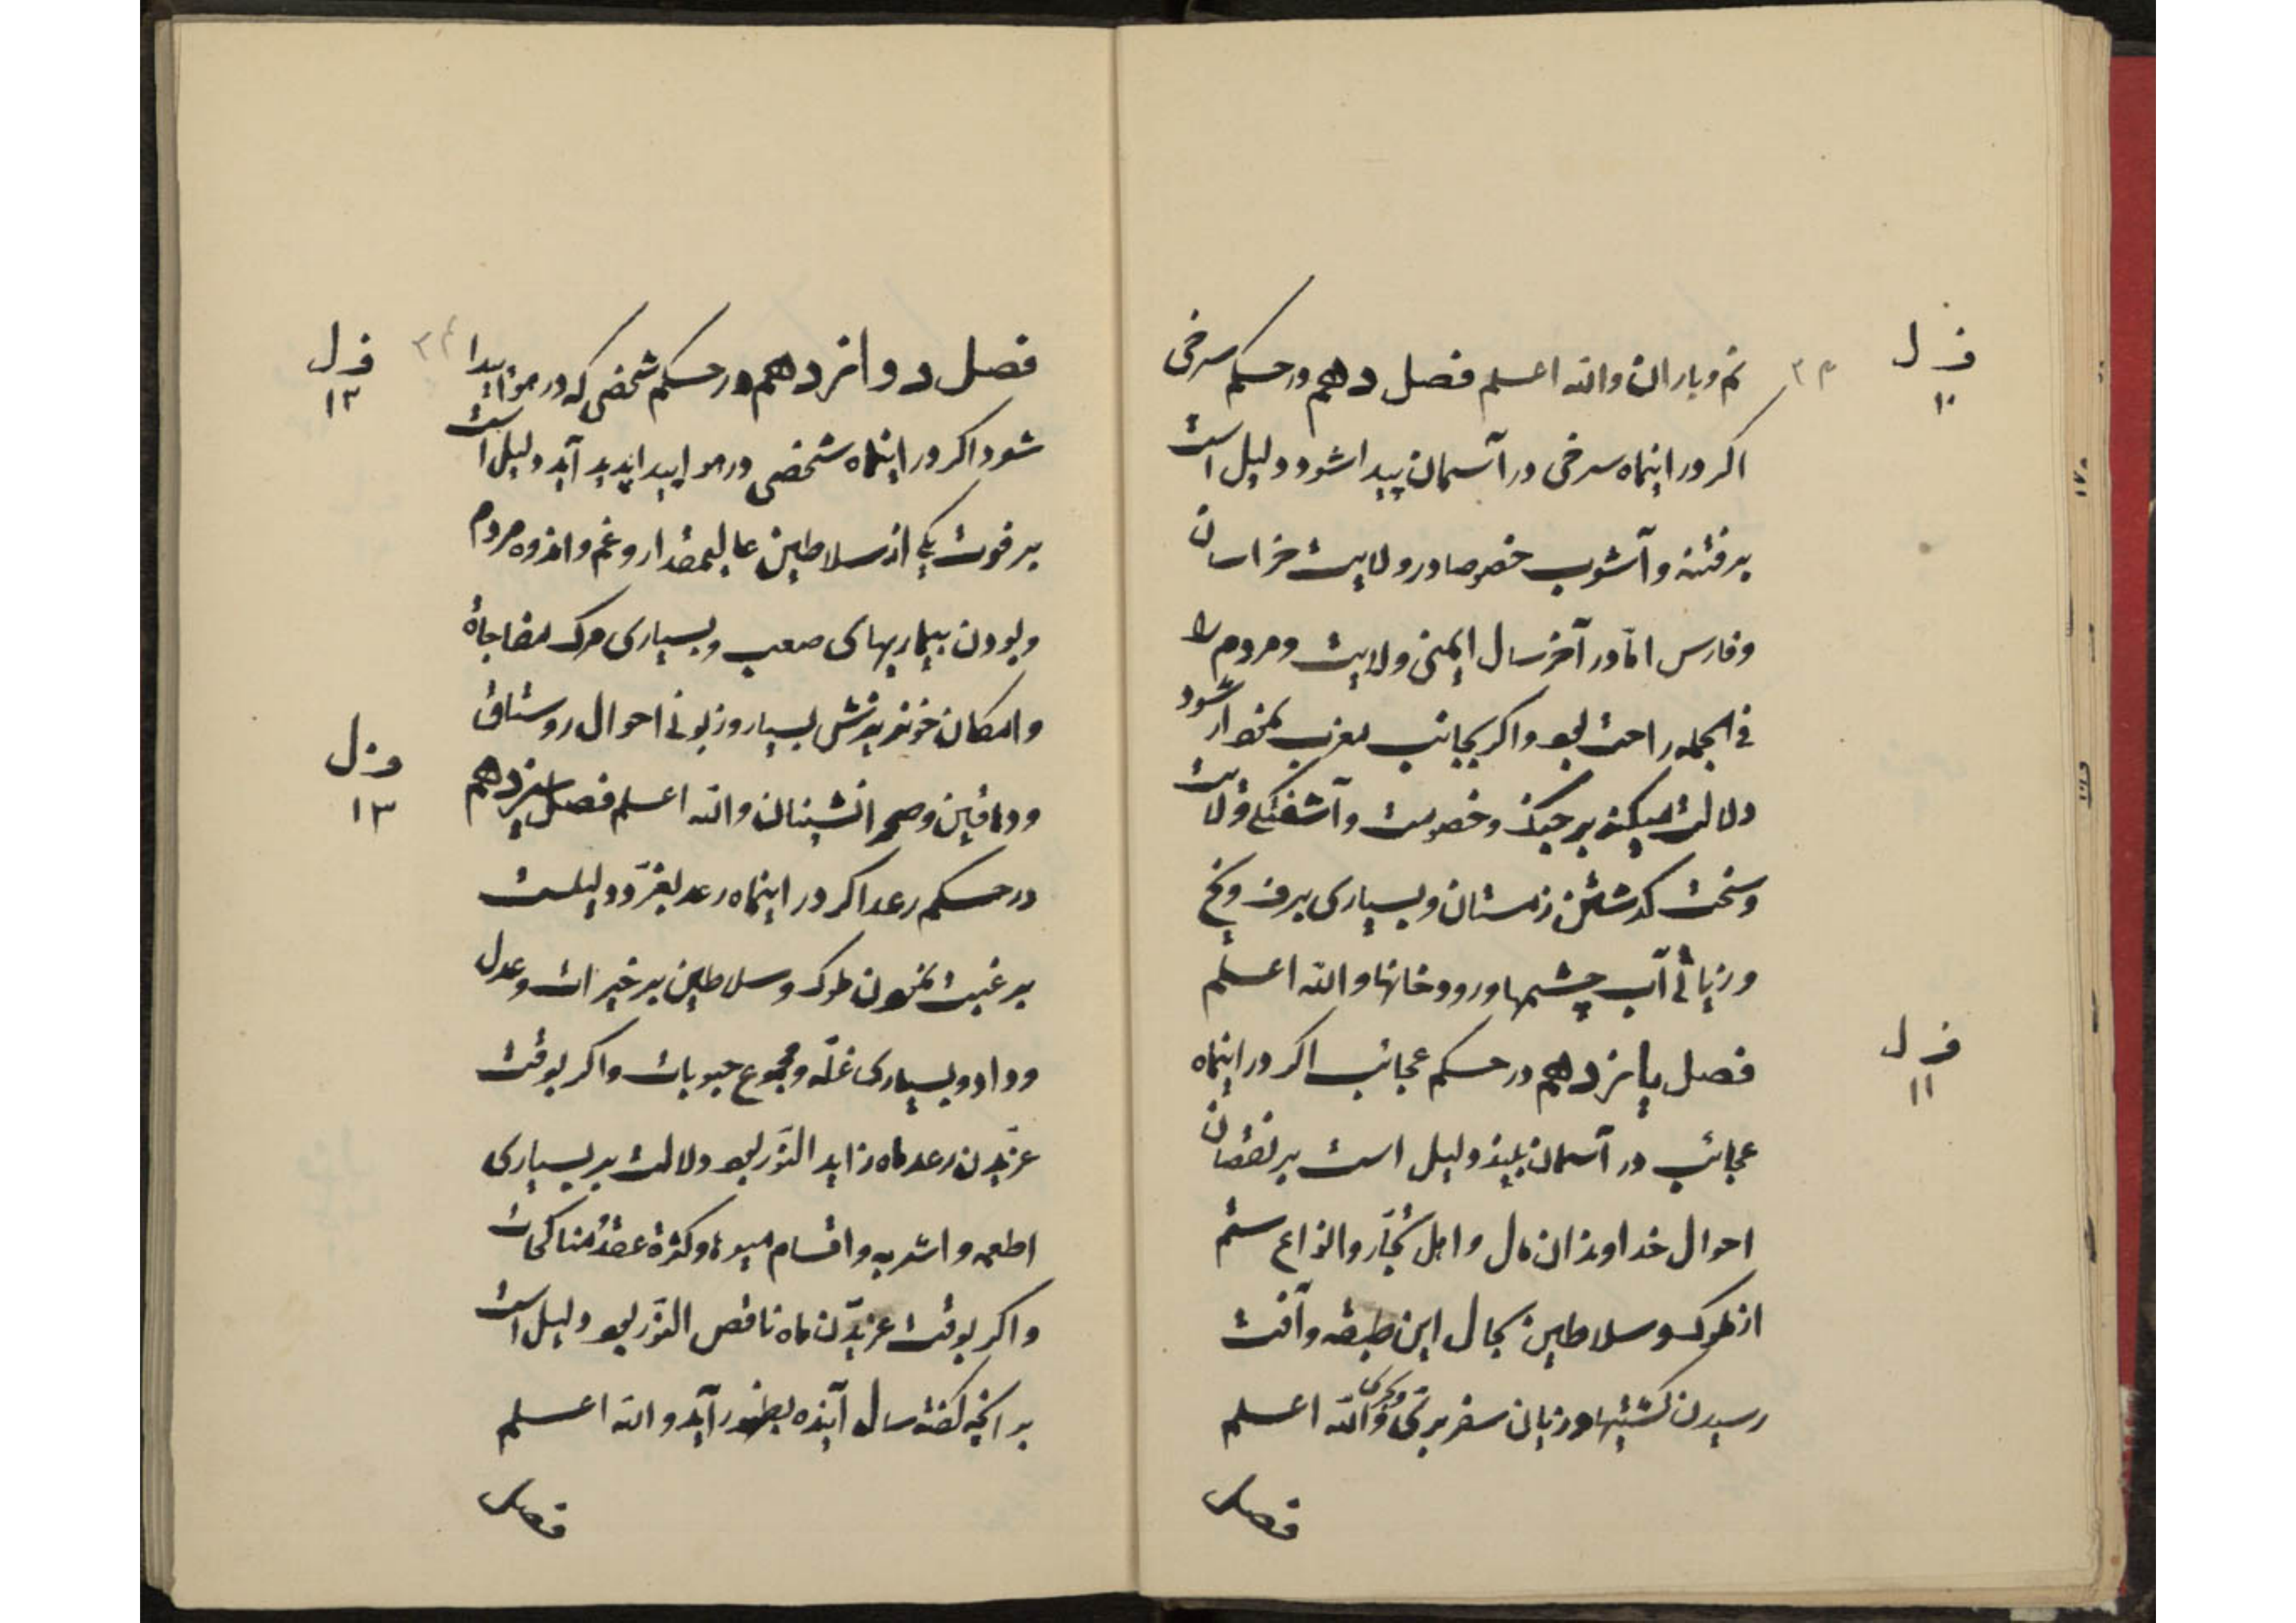 نم و باران والله اعلم فصل دهم در حکم سرخی
اکر در اینماه سرخی در آسمان پیدا شود دلیل است
بر فتنه و آشوب خصوصا در ولایت خراسان
و فارس امّا در آخر سال ایمنی ولایت و مردم را
فی الجمله راحت بود و اکر بجانب مغرب نمودار شود
دلالت میکند بر جنک و خصومت و آشفتکی ولایت
و سخت کدشتن زمستان و بسیاری برف و یخ
و زیاتی آب چشمها و رودخانها والله اعلم
فصل یانزدهم در حکم عجائب اکر در اینماه
عجائب در آسمان بیند دلیل است بر نقصان
احوال خداوندان مال و اهل تجّار و انواع ستم
از ملوک و سلاطین بحال این طبقه و آفت
رسیدن کشتیها و زیان سفر برّی و بحری والله اعلم
فصل
ف ل
۱۰
ف ل
۱۱
۳۳
فصل دوانزدهم در حکم شخصی که در هوا پیدا
شود اکر در اینماه شخصی در هوا پیدا پدید آید دلیل است
بر فوت یکی از سلاطین عالیمقدار و غم و اندوه مردم
و بودن بیماریهای صعب و بسیاری مرک مفاجاة
و امکان خونریزش بسیار و زبونی احوال روستاق
و دهاقین و صحرانشینان والله اعلم فصل سیزدهم
در حکم رعد اکر در اینماه رعد بغرّد دلیلست
بر غبت نمودن ملوک و سلاطین بر خیرات و عدل
و داد و بسیاری غلّه و مجموع حبوبات و اکر بوقت
غرّیدن رعد ماه زاید النّور بود دلالت بر بسیاری
اطعمه و اشربه و اقسام میوها و کثرة عقد مناکحات
و اکر بوقت غریدّن ماه ناقص النّور بود دلیل است
بر انچه کفته سال آینده بظهور آید والله اعلم
فصل
ف ل
۱۲
ف ل
۱۳